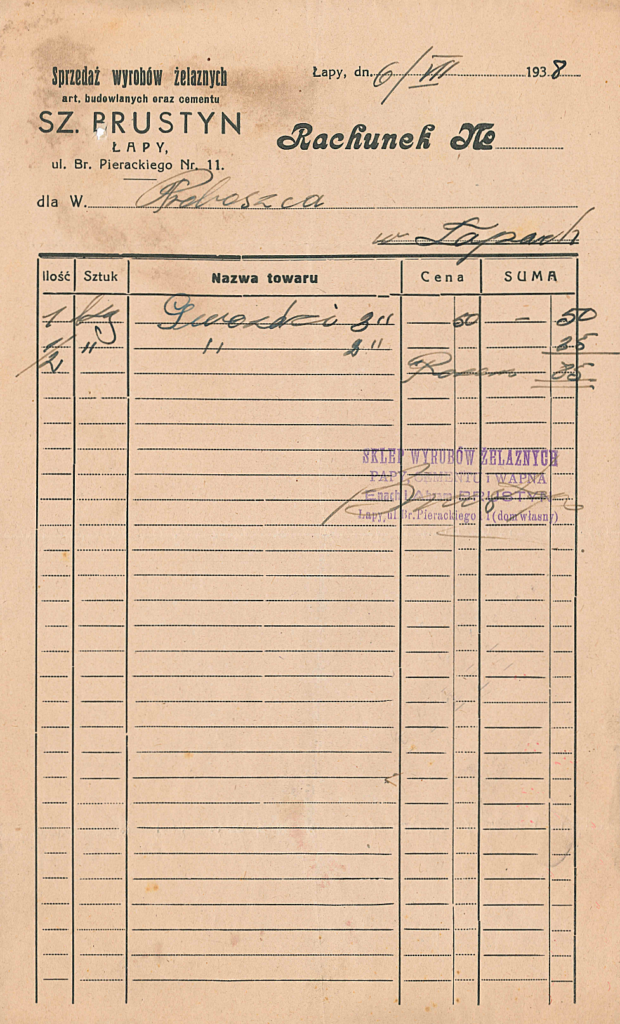 Sprzedaż wyrobów żelaznych
art. budowlanych oraz cementu
SZ. PRUSTYN
ŁAPY,
ul. Br. Pierackiego Nr. 11.
Łapy, dn. 6/VII 1938
Rachunek №
dla W. Proboszcza
w Łapach
Ilość Sztuk Nazwa towaru Cena SUMA
1 kg Gwoździ 3" 50 - 50
1/2 " " 2" 35
Razem 85
SKLEP WYROBÓW ŻELAZNYCH
PAPY, CEMENTU i WAPNA
PRUSTYN
Łapy, ul. Br. Pierackiego 11 (dom własny)